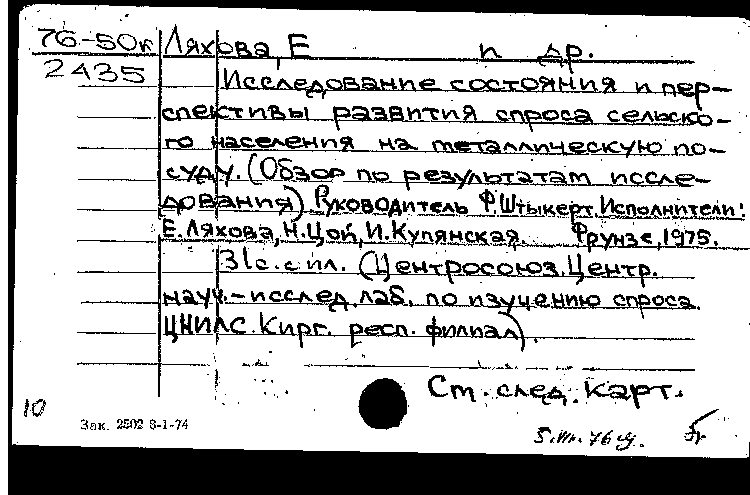 76-50к Ляхова, Е и др.
2435 Исследование состояния и пер-
спективы развития спроса сельско-
го населения на металлическую по-
суду. (Обзор по результатам иссле-
дования). Руководитель Ф.Штыкерт. Исполнители:
Е.Ляхова, Н.Цой, И.Купянская. Фрунзе, 1975.
31с. с ил. (Центросоюз. Центр.
науч.-исслед. лаб. по изучению спроса.
ЦНИЛС. Кирг. респ. филиал).
См. след. карт.
10
Зак. 2502 8-1-74